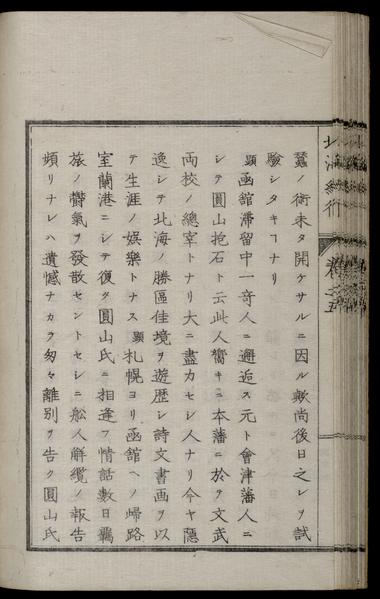 蠶ノ術未タ開ケサルニ因ル歟尚後日之レヲ試
驗シタキヿナリ
顯函館滯留中一奇人ニ邂逅ス元ト會津藩人ニ
シテ圓山抱石ト云此人嚮キニ本藩ニ於ヲ文武
両校ノ總宰トナリ大ニ盡力セシ人ナリ今ヤ隱
逸シテ北海ノ勝區佳境ヲ遊歴シ詩文書画ヲ以
テ生涯ノ娯樂トナス顯札幌ヨリ函舘ヘノ帰路
室蘭港ニシテ復タ圓山氏ニ相逢フ情話數日羇
旅ノ欝氣ヲ發散セントセシニ船人解纜ノ報告
頻リナレハ遺憾ナカラ匆々離別ヲ告ク圓山氏
北海紀行